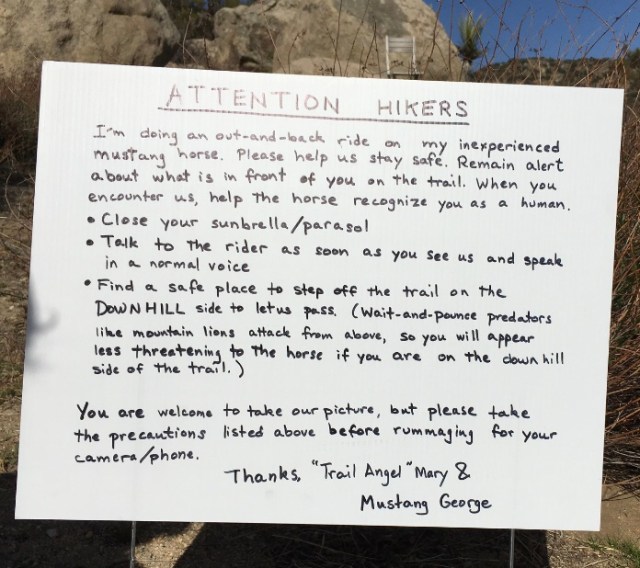 ATTENTION HIKERS
I'm doing an out-and-back ride on my inexperienced
mustang horse. Please help us stay safe. Remain alert
about what is in front of you on the trail. When you
encounter us, help the horse recognize you as a human.
• Close your sunbrella/parasol
• Talk to the rider as soon as you see us and speak
in a normal voice
• Find a safe place to step off the trail on the
DOWNHILL side to let us pass. (Wait-and-pounce predators
like mountain lions attack from above, so you will appear
less threatening to the horse if you are on the down hill
side of the trail.)
You are welcome to take our picture, but please take
the precautions listed above before rummaging for your
camera/phone.
Thanks, "Trail Angel" Mary &
Mustang George